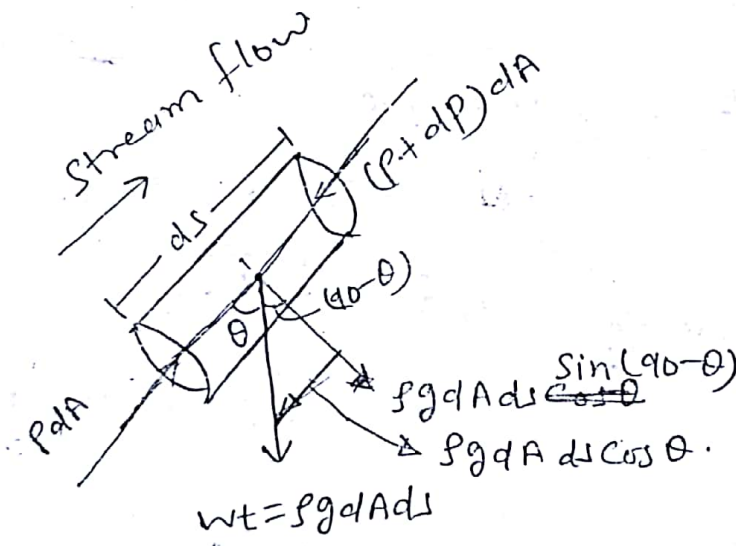 Stream flow
(P+dP)dA
ds
(90-θ)
θ
PdA
ρgdAds Cosθ Sin(90-θ)
ρgdA ds Cos θ.
wt=ρgdAds